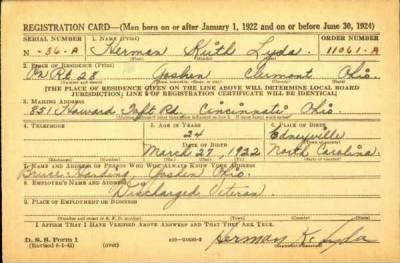 REGISTRATION CARD—(Men born on or after January 1, 1922 and on or before June 30, 1924)
SERIAL NUMBER 1. NAME (Print) ORDER NUMBER
N -36-A Herman Keith Lyda 11061-A
(First) (Middle) (Last)
2. PLACE OF RESIDENCE (Print)
On Rt 28 Goshen Clermont Ohio.
(THE PLACE OF RESIDENCE GIVEN ON THE LINE ABOVE WILL DETERMINE LOCAL BOARD
JURISDICTION; LINE 2 OF REGISTRATION CERTIFICATE WILL BE IDENTICAL)
3. MAILING ADDRESS
851 Howard Taft Rd. Cincinnati Ohio.
4. TELEPHONE 5. AGE IN YEARS 6. PLACE OF BIRTH
24 Edneyville
DATE OF BIRTH
March 27, 1922 North Carolina
7. NAME AND ADDRESS OF PERSON WHO WILL ALWAYS KNOW YOUR ADDRESS
Bruce Harding, Goshen Ohio.
8. EMPLOYER'S NAME AND ADDRESS
Discharged Veteran
9. PLACE OF EMPLOYMENT OR BUSINESS
I AFFIRM THAT I HAVE VERIFIED ABOVE ANSWERS AND THAT THEY ARE TRUE.
D. S. S. Form 1
(Revised 6-1-42) (over) Herman K. Lyda